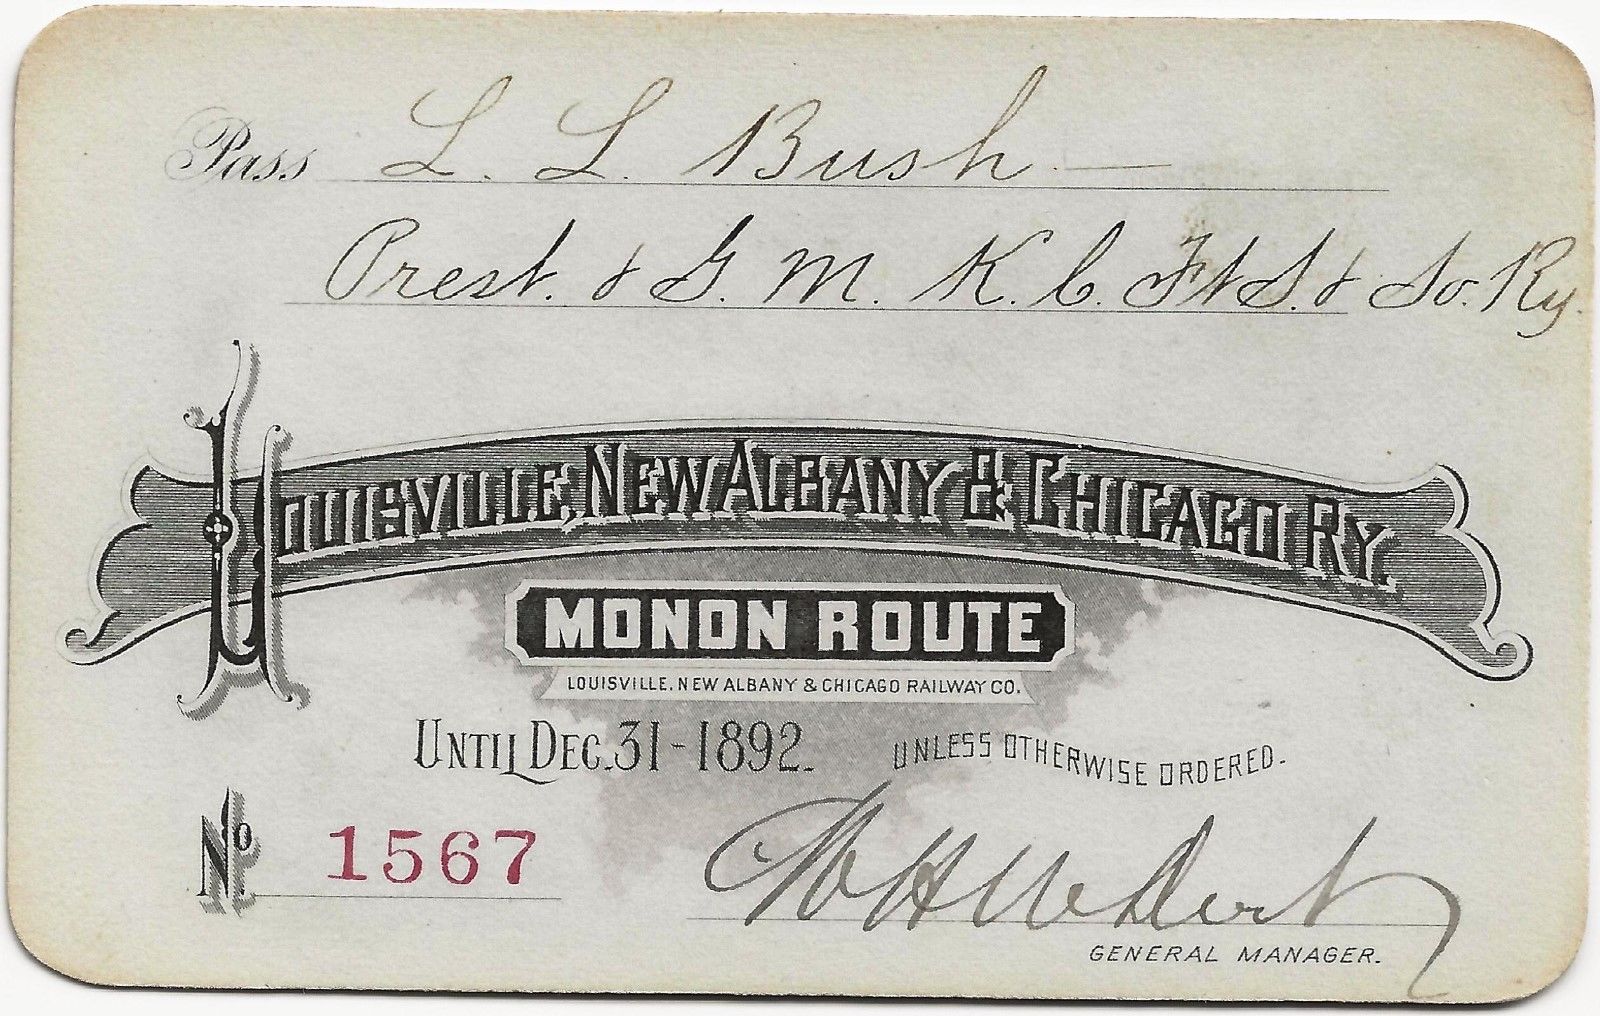 Pass L. L. Bush —
Prest. & G. M. K. C. Ft S. & So. Ry.
LOUISVILLE, NEW ALBANY & CHICAGO RY.
MONON ROUTE
LOUISVILLE, NEW ALBANY & CHICAGO RAILWAY CO.
UNTIL DEC. 31-1892. UNLESS OTHERWISE ORDERED.
No. 1567
W H McDoel
GENERAL MANAGER.